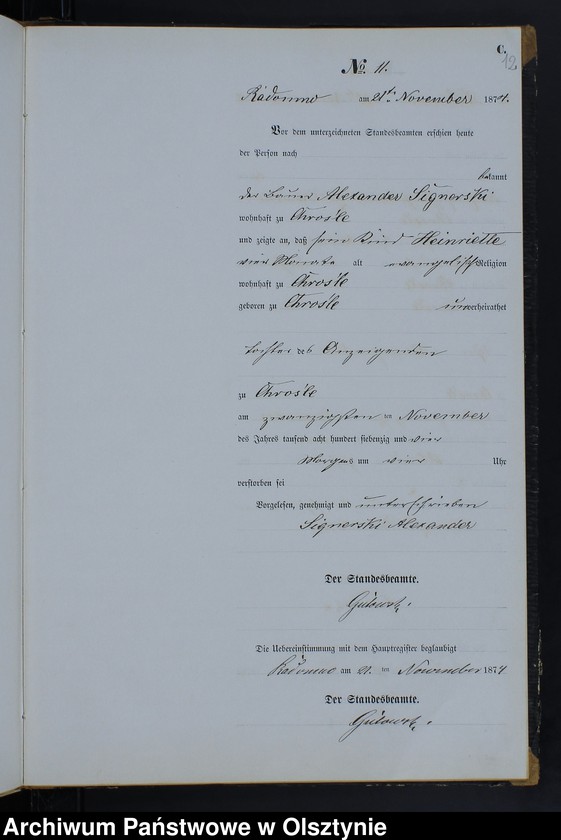 C.
12
No. 11.
Radomno am 21ten November 1874.
Vor dem unterzeichneten Standesbeamten erschien heute
der Person nach
bekannt
der Bauer Alexander Signerski
wohnhaft zu Chrosle
und zeigte an, daß sein Kind Heinriette
vier Monate alt evangelisch Religion
wohnhaft zu Chrosle
geboren zu Chrosle unverheirathet
Tochter des Anzeigenden
zu Chrosle
am zwanzigsten ten November
des Jahres tausend acht hundert siebenzig und vier
Morgens um vier Uhr
verstorben sei
Vorgelesen, genehmigt und unterschrieben
Signerski Alexander
Der Standesbeamte.
Die Uebereinstimmung mit dem Hauptregister beglaubigt
Radomno am 21. ten November 1874
Der Standesbeamte.
Archiwum Państwowe w Olsztynie